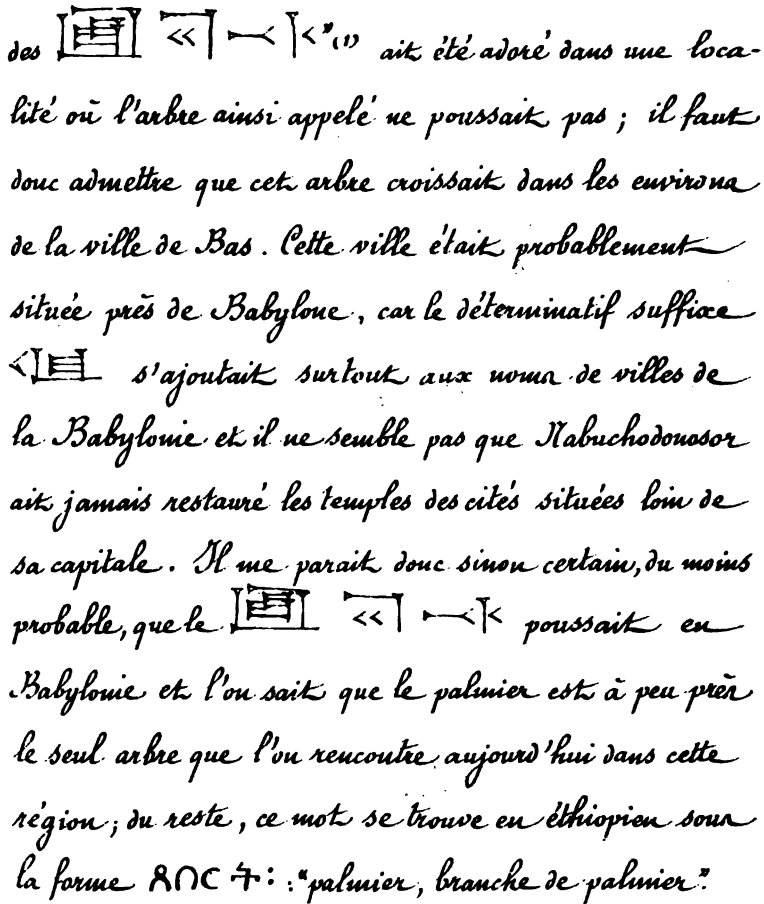 des ”(1) ait été adoré dans une loca-
lité où l'arbre ainsi appelé ne poussait pas ; il faut
donc admettre que cet arbre croissait dans les environs
de la ville de Bas. Cette ville était probablement
située près de Babylone, car le déterminatif suffixe
s'ajoutait surtout aux noms de villes de
la Babylonie et il ne semble pas que Nabuchodonosor
ait jamais restauré les temples des cités situées loin de
sa capitale. Il me parait donc sinon certain, du moins
probable, que le poussait en
Babylonie et l'on sait que le palmier est à peu près
le seul arbre que l'on rencontre aujourd'hui dans cette
région ; du reste, ce mot se trouve en éthiopien sous
la forme ጸበርት: : "palmier, branche de palmier".